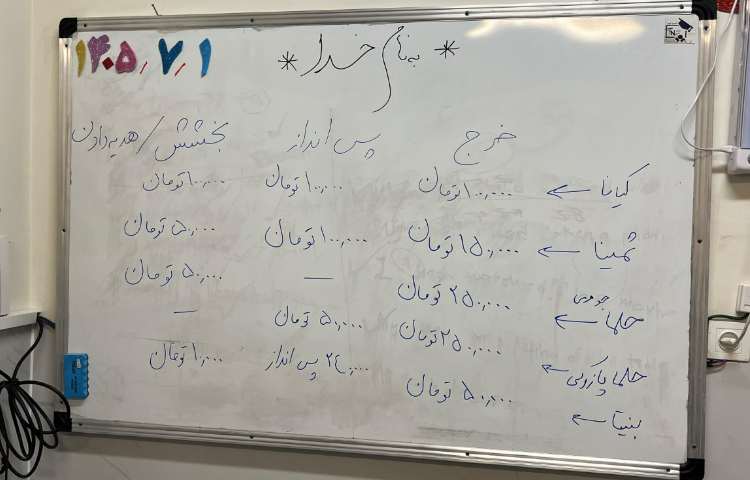 ۱۴۰۵/۷/۱
* به نام خدا *
خرج پس انداز بخشش/هدیه دادن
کیانا ← ۱۰۰,۰۰۰ تومان ۱۰۰,۰۰۰ تومان ۱۰۰,۰۰۰ تومان
ثمینا ← ۱۵۰,۰۰۰ تومان ۱۰۰,۰۰۰ تومان ۵۰,۰۰۰ تومان
حلما ← ۲۵۰,۰۰۰ تومان — ۵۰,۰۰۰ تومان
حلما ← ۲۵۰,۰۰۰ تومان ۵۰,۰۰۰ تومان —
بنیتا ← ۵۰,۰۰۰ تومان ۲۴۰,۰۰۰ پس انداز ۱۰,۰۰۰ تومان